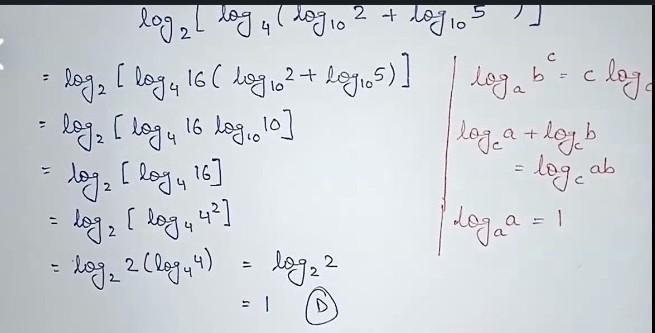 log₂[ log₄(log₁₀2 + log₁₀5 )]
= log₂[ log₄16( log₁₀2 + log₁₀5)]
= log₂[ log₄16 log₁₀10]
= log₂[ log₄16]
= log₂[ log₄4²]
= log₂2(log₄4) = log₂2
= 1 D
logₐbᶜ = c log
log꜀a + log꜀b
= log꜀ab
logₐa = 1